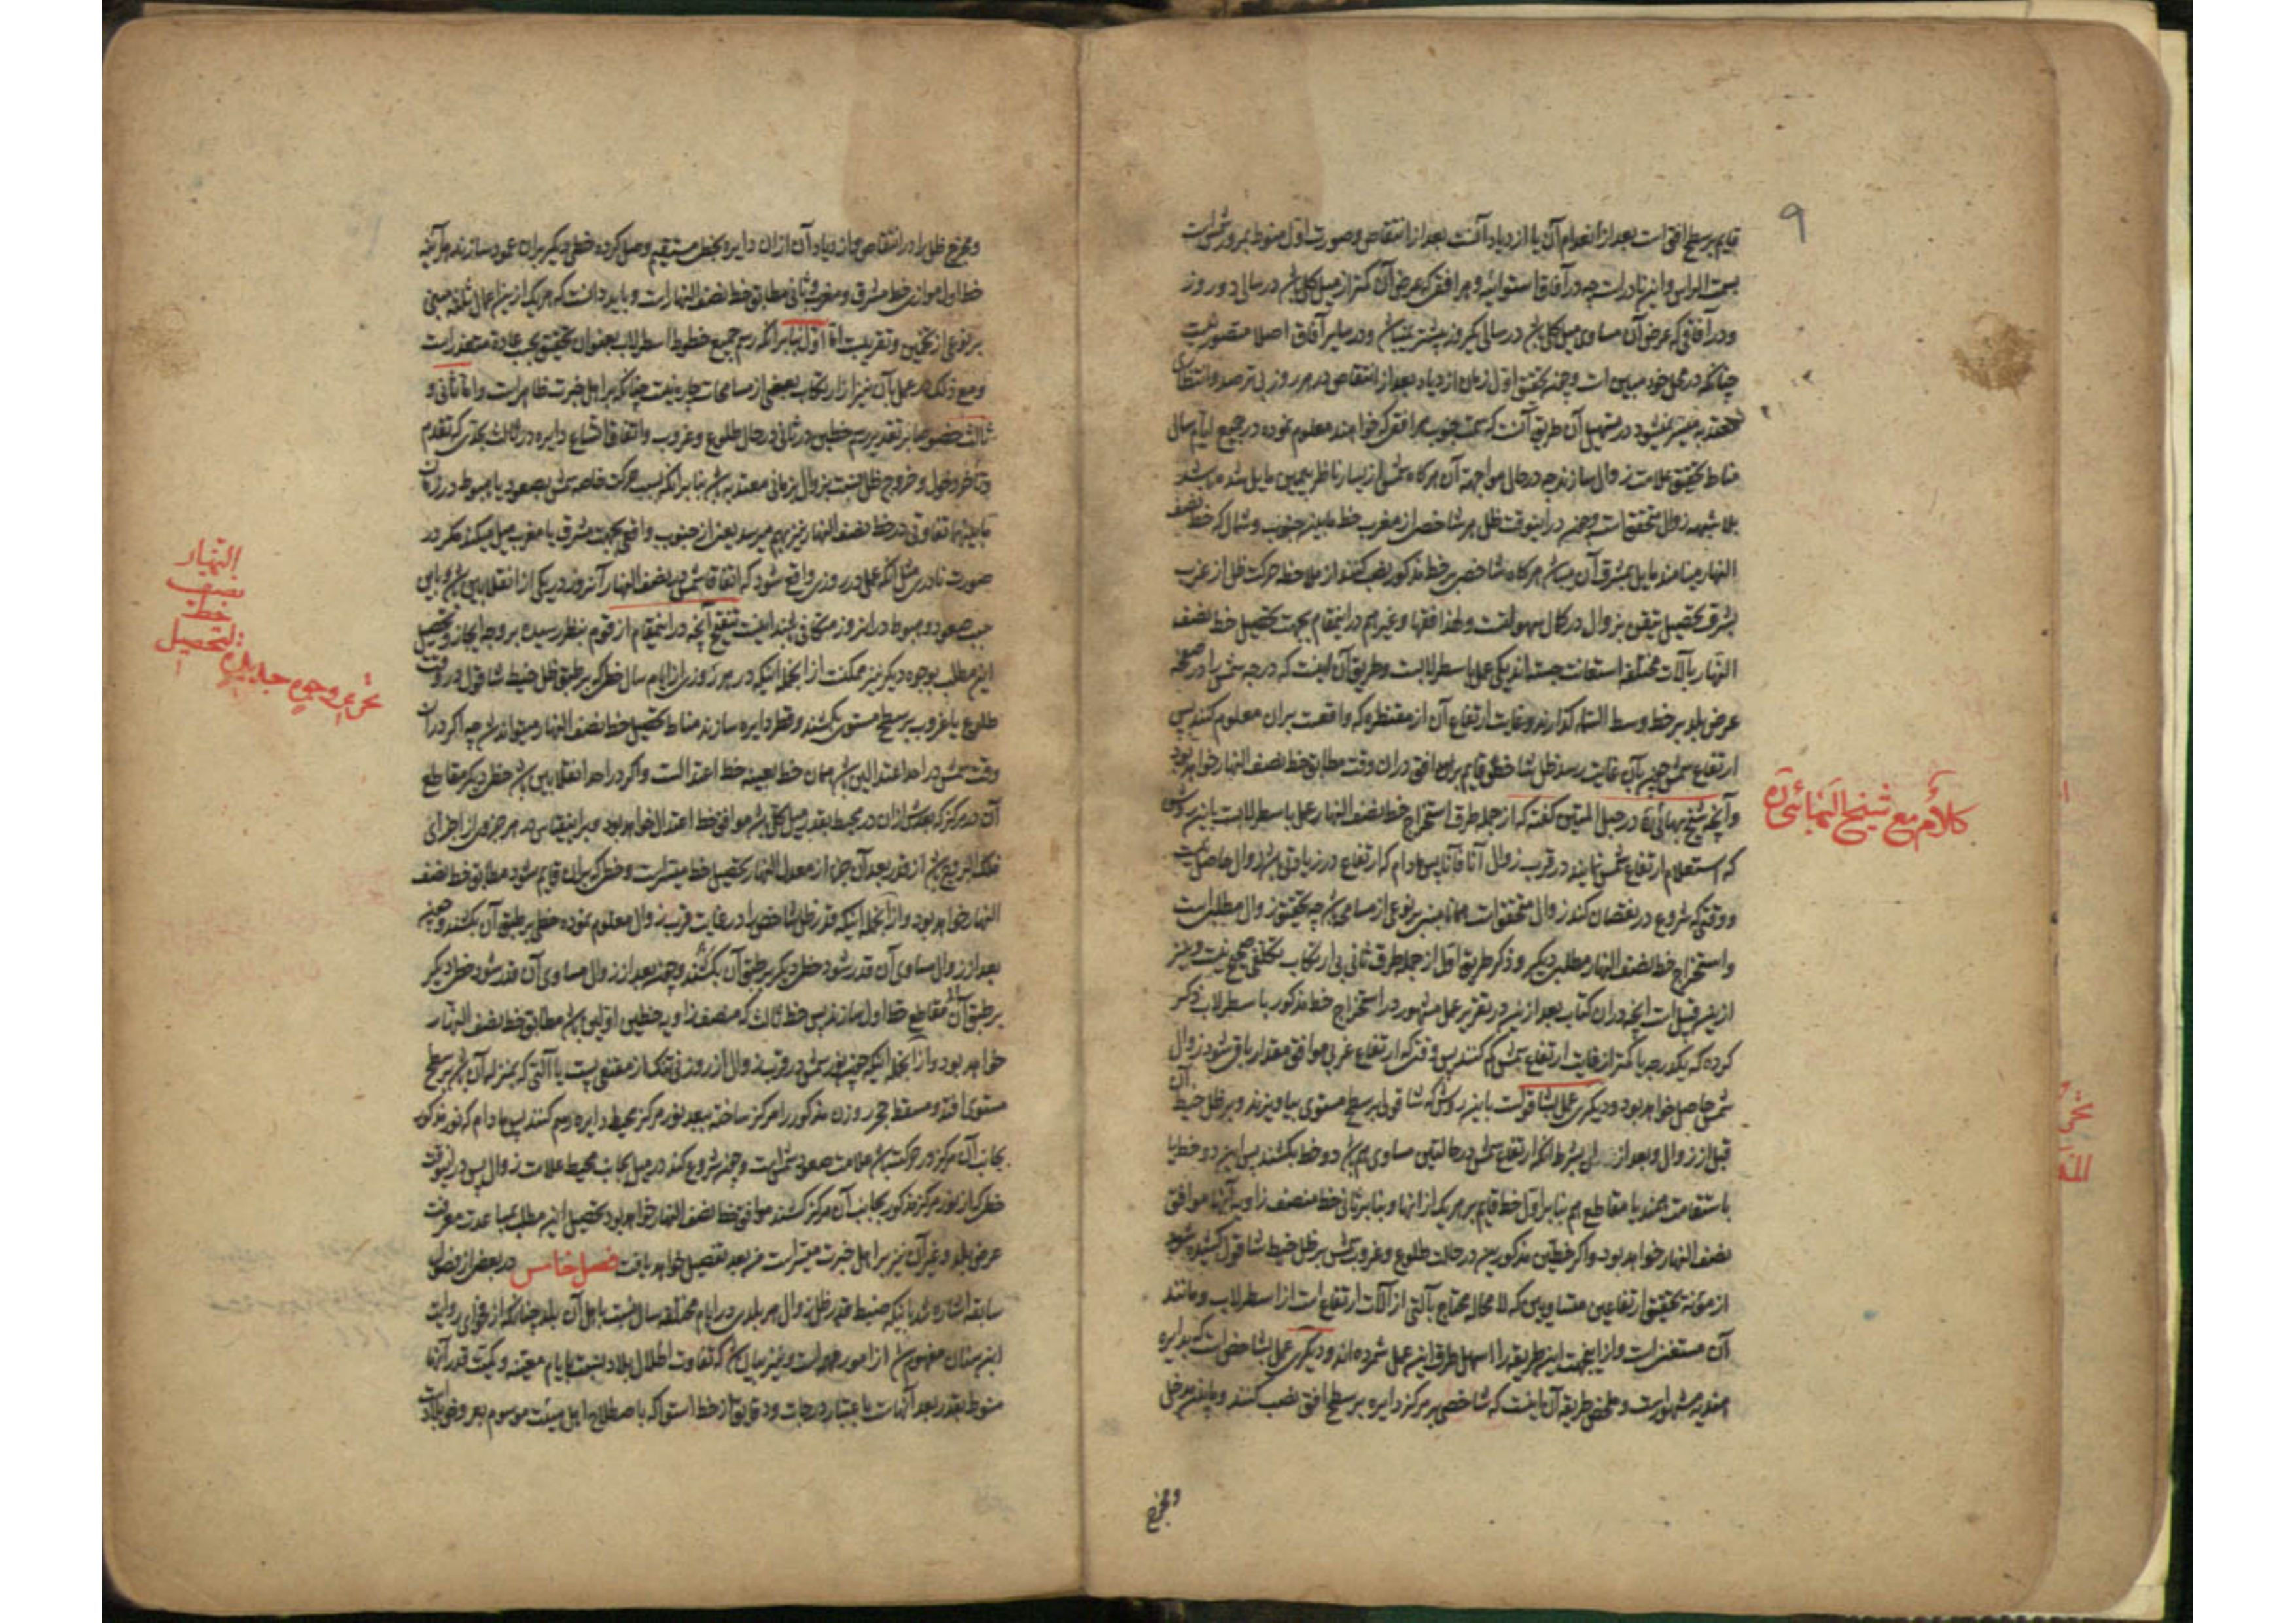 ۹
قایم بر سطح افق است بعد از انعدام آن یا ازدیاد آنست بعد از انتقاص و صورت اول منوط بمرور شمس است
بسمت الراس و این نادر است چه در آفاق استوائیه و هر افقی که عرض آن کمتر از میل کلی باشد در سالی دو روز
و در آفاقی که عرض آن مساوی میل کلی باشد در سالی یکروز بیشتر نمیباشد و در سایر آفاق اصلا متصور نیست
چنانکه در محل خود مبین است و چون تحقق اول زمان ازدیاد بعد از انتقاص در هر روز بی ترصد و انتظار
معتد به میسر نمیشود در تسهیل آن طریق آنست که سمت جنوب هر افقی که خواهند معلوم نموده در جمیع ایام سال
مناط تحقیق علامت زوال سازند چه در حال مواجهه آن هرگاه شمس از یسار ناظر بیمین مایل شده باشد
بلا شبهه زوال متحقق است و چون در اینوقت ظل هر شاخص از مغرب خط مابین جنوب و شمال که خط نصف
النهار مینامند مایل بمشرق آن میباشد هرگاه شاخص بر خط مذکور نصب کنند از ملاحظه حرکت ظل از غرب
بشرق تحصیل تیقن بزوال در کمال سهولتست و لهذا فقها و غیر هم در اینمقام بجهت تحصیل خط نصف
النهار بآلات مختلفه استعانت جسته‌اند یکی عمل باسطرلابست و طریق آن اینست که درجه شمس را در صفحه
عرض بلد بر خط وسط السماء گذارند و غایت ارتفاع آن از مقنطره که واقعست بران معلوم کنند پس
ارتفاع شمس چون بآن غایت رسد ظل شاخص قایم بران افق در ان وقت مطابق خط نصف النهار خواهد بود
و آنچه شیخ بهائی ره در حبل المتین گفته که از جمله طرق استخراج خط نصف النهار عمل باسطرلابست باین روش
که استعلام ارتفاع شمس نمایند در قرب زوال آنا فآنا پس مادام که ارتفاع در زیادتی باشد زوال حاصل نیست
و وقتی که شروع در نقصان کند زوال متحقق است همانا مبنی بر نوعی از مسامحه باشد چه تحقیق زوال مطلبی است
و استخراج خط نصف النهار مطلبی دیگر و ذکر طریق اول از جمله طرق ثانی بی ارتکاب تکلفی صحیح نیست و نیز
ازین قبیل است آنچه در ان کتاب بعد ازین در تقریر عمل مشهور در استخراج خط مذکور باسطرلاب ذکر
کرده که یکدرجه یا کمتر از غایت ارتفاع شمس کم کنند پس وقتی که ارتفاع غربی موافق مقدار باقی شود زوال
شمس حاصل خواهد بود و دیگری عمل بشاقولست باین روش که شاقولی بر سطح مستوی بیاویزند و بر ظل خیط آن
قبل از زوال و بعد از زوال بشرط آنکه ارتفاع شمس در حالتین مساوی هم باشد دو خط بکشند پس این دو خط یا
باستقامت همند یا مقاطع هم بنا بر اول خط قایم بر هر یک از انها و بنا بر ثانی خط منصف زاویه آنها موافق
نصف النهار خواهد بود و اگر خطین مذکورین در حالت طلوع و غروب شمس بر ظل خیط شاقول کشیده شود
از مؤنه تحقیق ارتفاعین متساویین که لا محاله محتاج بآلتی از آلات ارتفاع است از اسطرلاب و مانند
آن مستغنی است و ازینجهت این طریقه را اسهل طرق این عمل شمرده‌اند و دیگری عمل بشاخص است که بدایره
هندیه مشهور است و ملخص طریقه آن اینست که شاخصی بر مرکز دایره بر سطح افق نصب کنند و مابین مدخل
و مخرج
کلام مع شیخ البهائی ره
و مخرج ظل را در انتقاص و ازدیاد آن از ان دایره بخط مستقیم وصل کرده خطی دیگر بران عمود سازند هر آینه
خط اول موازی خط مشرق و مغرب و ثانی مطابق خط نصف النهار است و باید دانست که هر یک ازین اعمال ثلثه مبنی
بر نوعی از تخمین و تقریبست اما اول بنا بر انکه رسم جمیع خطوط اسطرلاب بعنوان تحقیق بحسب عادة متعذر است
و مع ذلک در عمل بآن نیز از ارتکاب بعضی از مسامحات چاره نیست چنانکه بر اهل خبرت ظاهر است و اما ثانی و
ثالث خصوصا بر تقدیر رسم خطین در ثانی در حال طلوع و غروب و اتفاق اتساع دایره در ثالث بحدی که تقدم
و تاخر دخول و خروج ظل نسبت بزوال بزمانی معتد به باشد بنا بر انکه بسبب حرکت خاصه شمس بصعود یا هبوط در زمان
ما بینهما تفاوتی در خط نصف النهار نیز بهم میرسد یعنی از جنوب واقعی بجهت مشرق یا مغرب میل میکند مگر در
صورت نادری مثل آنکه عمل در روزی واقع شود که اتفاقا شمس در نصف النهار آنروز در یکی از انقلابین باشد و باین
جهت صعود و هبوط در انروز متکافی چند اینست تنقیح آنچه در اینمقام از قوم بنظر رسیده بر وجه ایجاز و تحصیل
این مطلب بوجوه دیگر نیز ممکنست از آنجمله اینکه در هر روزی از ایام سال خطی که بر طبق ظل خیط شاقول در وقت
طلوع یا غروب بر سطح مستوی بکشند و قطر دایره سازند مناط تحصیل خط نصف النهار میتواند شد چه اگر در ان
وقت شمس در احد اعتدالین باشد همان خط بعینه خط اعتدالست و اگر در احد انقلابین باشد خطی دیگر مقاطع
آن در مرکز که بعدش از ان در محیط بقدر میل کلی باشد موافق خط اعتدال خواهد بود و برین قیاس در هر جزوی از اجزای
فلک البروج باشد از قدر بعد آن جزء از معدل النهار تحصیل خط میسر است و خطی که بران قایم شود مطابق خط نصف
النهار خواهد بود و از آنجمله اینکه قدر ظل شاخص را در غایت قرب زوال معلوم نموده خطی بر طبق آن بکشند و چون
بعد از زوال مساوی آن قدر شود خطی دیگر بر طبق آن بکشند و چون بعد از زوال مساوی آن قدر شود خطی دیگر
بر طبق آن مقاطع خط اول سازند پس خط ثالث که منصف زاویه خطین اولین باشد مطابق خط نصف النهار
خواهد بود و از آنجمله اینکه چون نور شمس در قرب زوال از روزنی تنک از مقنعی پست یا آلتی که بمنزله آن باشد بر سطح
مستوی افتد و مسقط حجر روزن مذکور را مرکز ساخته ببعد نور مرکز محیط دایره رسم کنند پس مادام که نور مذکور
بجانب آن مرکز در حرکت باشد علامت صعود شمس است و چون شروع کند در میل بجانب محیط علامت زوال پس در اینوقت
خطی که از نور مرکز مذکور بجانب آن مرکز کشند موافق خط نصف النهار خواهد بود تحصیل این مطلب بمساعدت معرفت
عرض بلد و غیر آن نیز بر اهل خبرت میسر است من بعد تفصیل خواهد یافت فصل خامس در بعض از فصول
سابقه اشاره شد بانکه ضبط قدر ظل زوال هر بلدی در ایام مختلفه سال نسبت باهل آن بلد چنانکه از فحوای روایت
ابن سنان مفهوم شد از امور مهمه است و نیز بیان شد که تفاوت اظلال بلاد نسبت بایام معینه و کمیت قدر آنها
منوط بقدر بعد آنهاست باعتبار درجات و دقایق از خط استوا که باصطلاح اهل هیئت موسوم بعروض بلاد است
تحریر وجوه جدیدة لتحصیل
خط
نصف
النهار